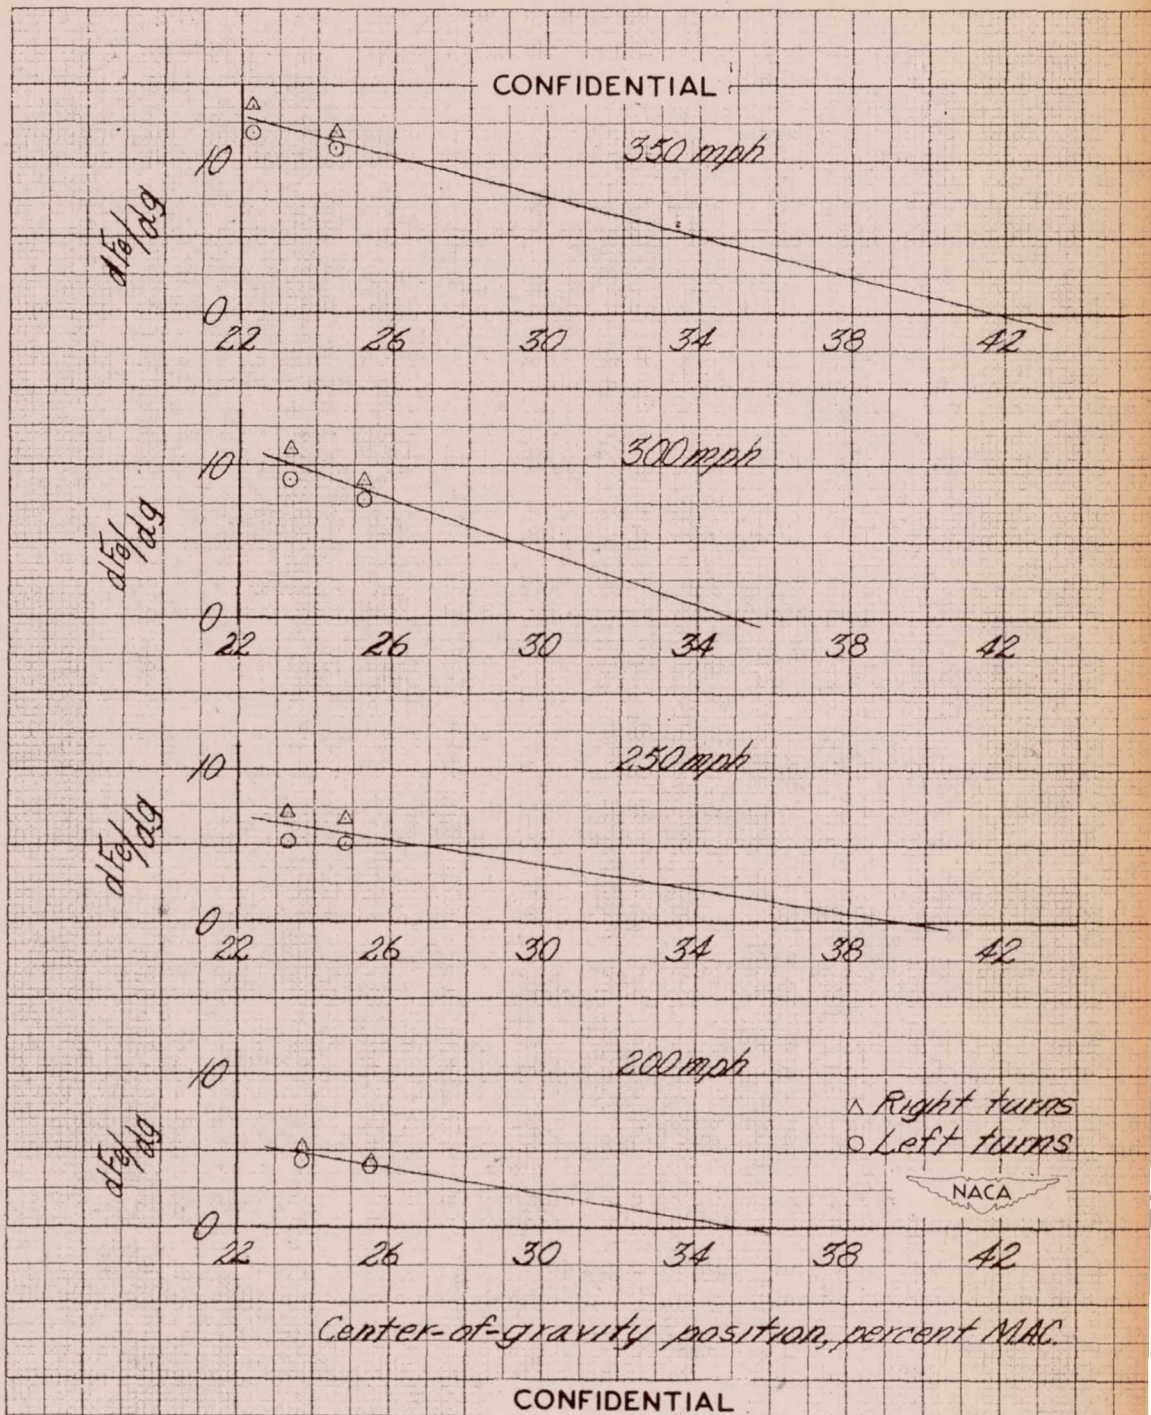 CONFIDENTIAL
350 mph
10
dFe/dg
0
22 26 30 34 38 42
300 mph
10
dFe/dg
0
22 26 30 34 38 42
250 mph
10
dFe/dg
0
22 26 30 34 38 42
200 mph
10
dFe/dg
0
22 26 30 34 38 42
Right turns
Left turns
NACA
Center-of-gravity position, percent M.A.C.
CONFIDENTIAL